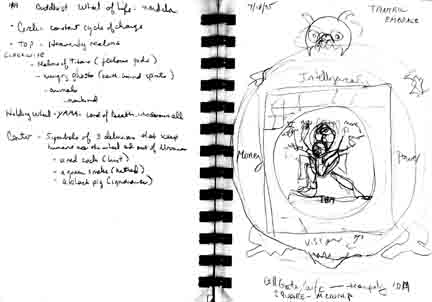 Buddhist Wheel of life - mandala
- Cyclic constant cycle of change
- TOP - Heavenly realms
CLOCKWISE
- Realm of Titans (jealous gods)
- hungry ghosts (earth bound spirits)
- animals
- mankind
Holding Wheel - YAMA: Lord of Death
Center - Symbols of 3 delusions that keep
humans on the wheel and out of Nirvana
- a red cock (lust)
- a green snake (hatred)
- a black pig (ignorance)
TANTRIC
EMBRACE
Intelligences
Money
Power
IBM
Bill Gates
SQUARE -